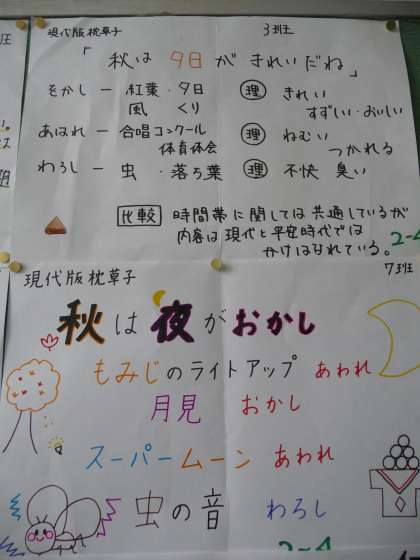 現代版枕草子 3班
「秋は夕日がきれいだね」
をかし ー 紅葉・夕日 ㊣理 きれい
風 くり すずしい・おいしい
あはれ ー 合唱コンクール 理 ねむい
体育体会 つかれる
わろし ー 虫・落ち葉 理 不快 臭い
比較 時間帯に関しては共通しているが
内容は現代と平安時代では
かけはなれている。
2-4
現代版枕草子 7班
秋は夜がおかし
もみじのライトアップ あわれ
月見 おかし
スーパームーン あわれ
虫の音 わろし
2-4